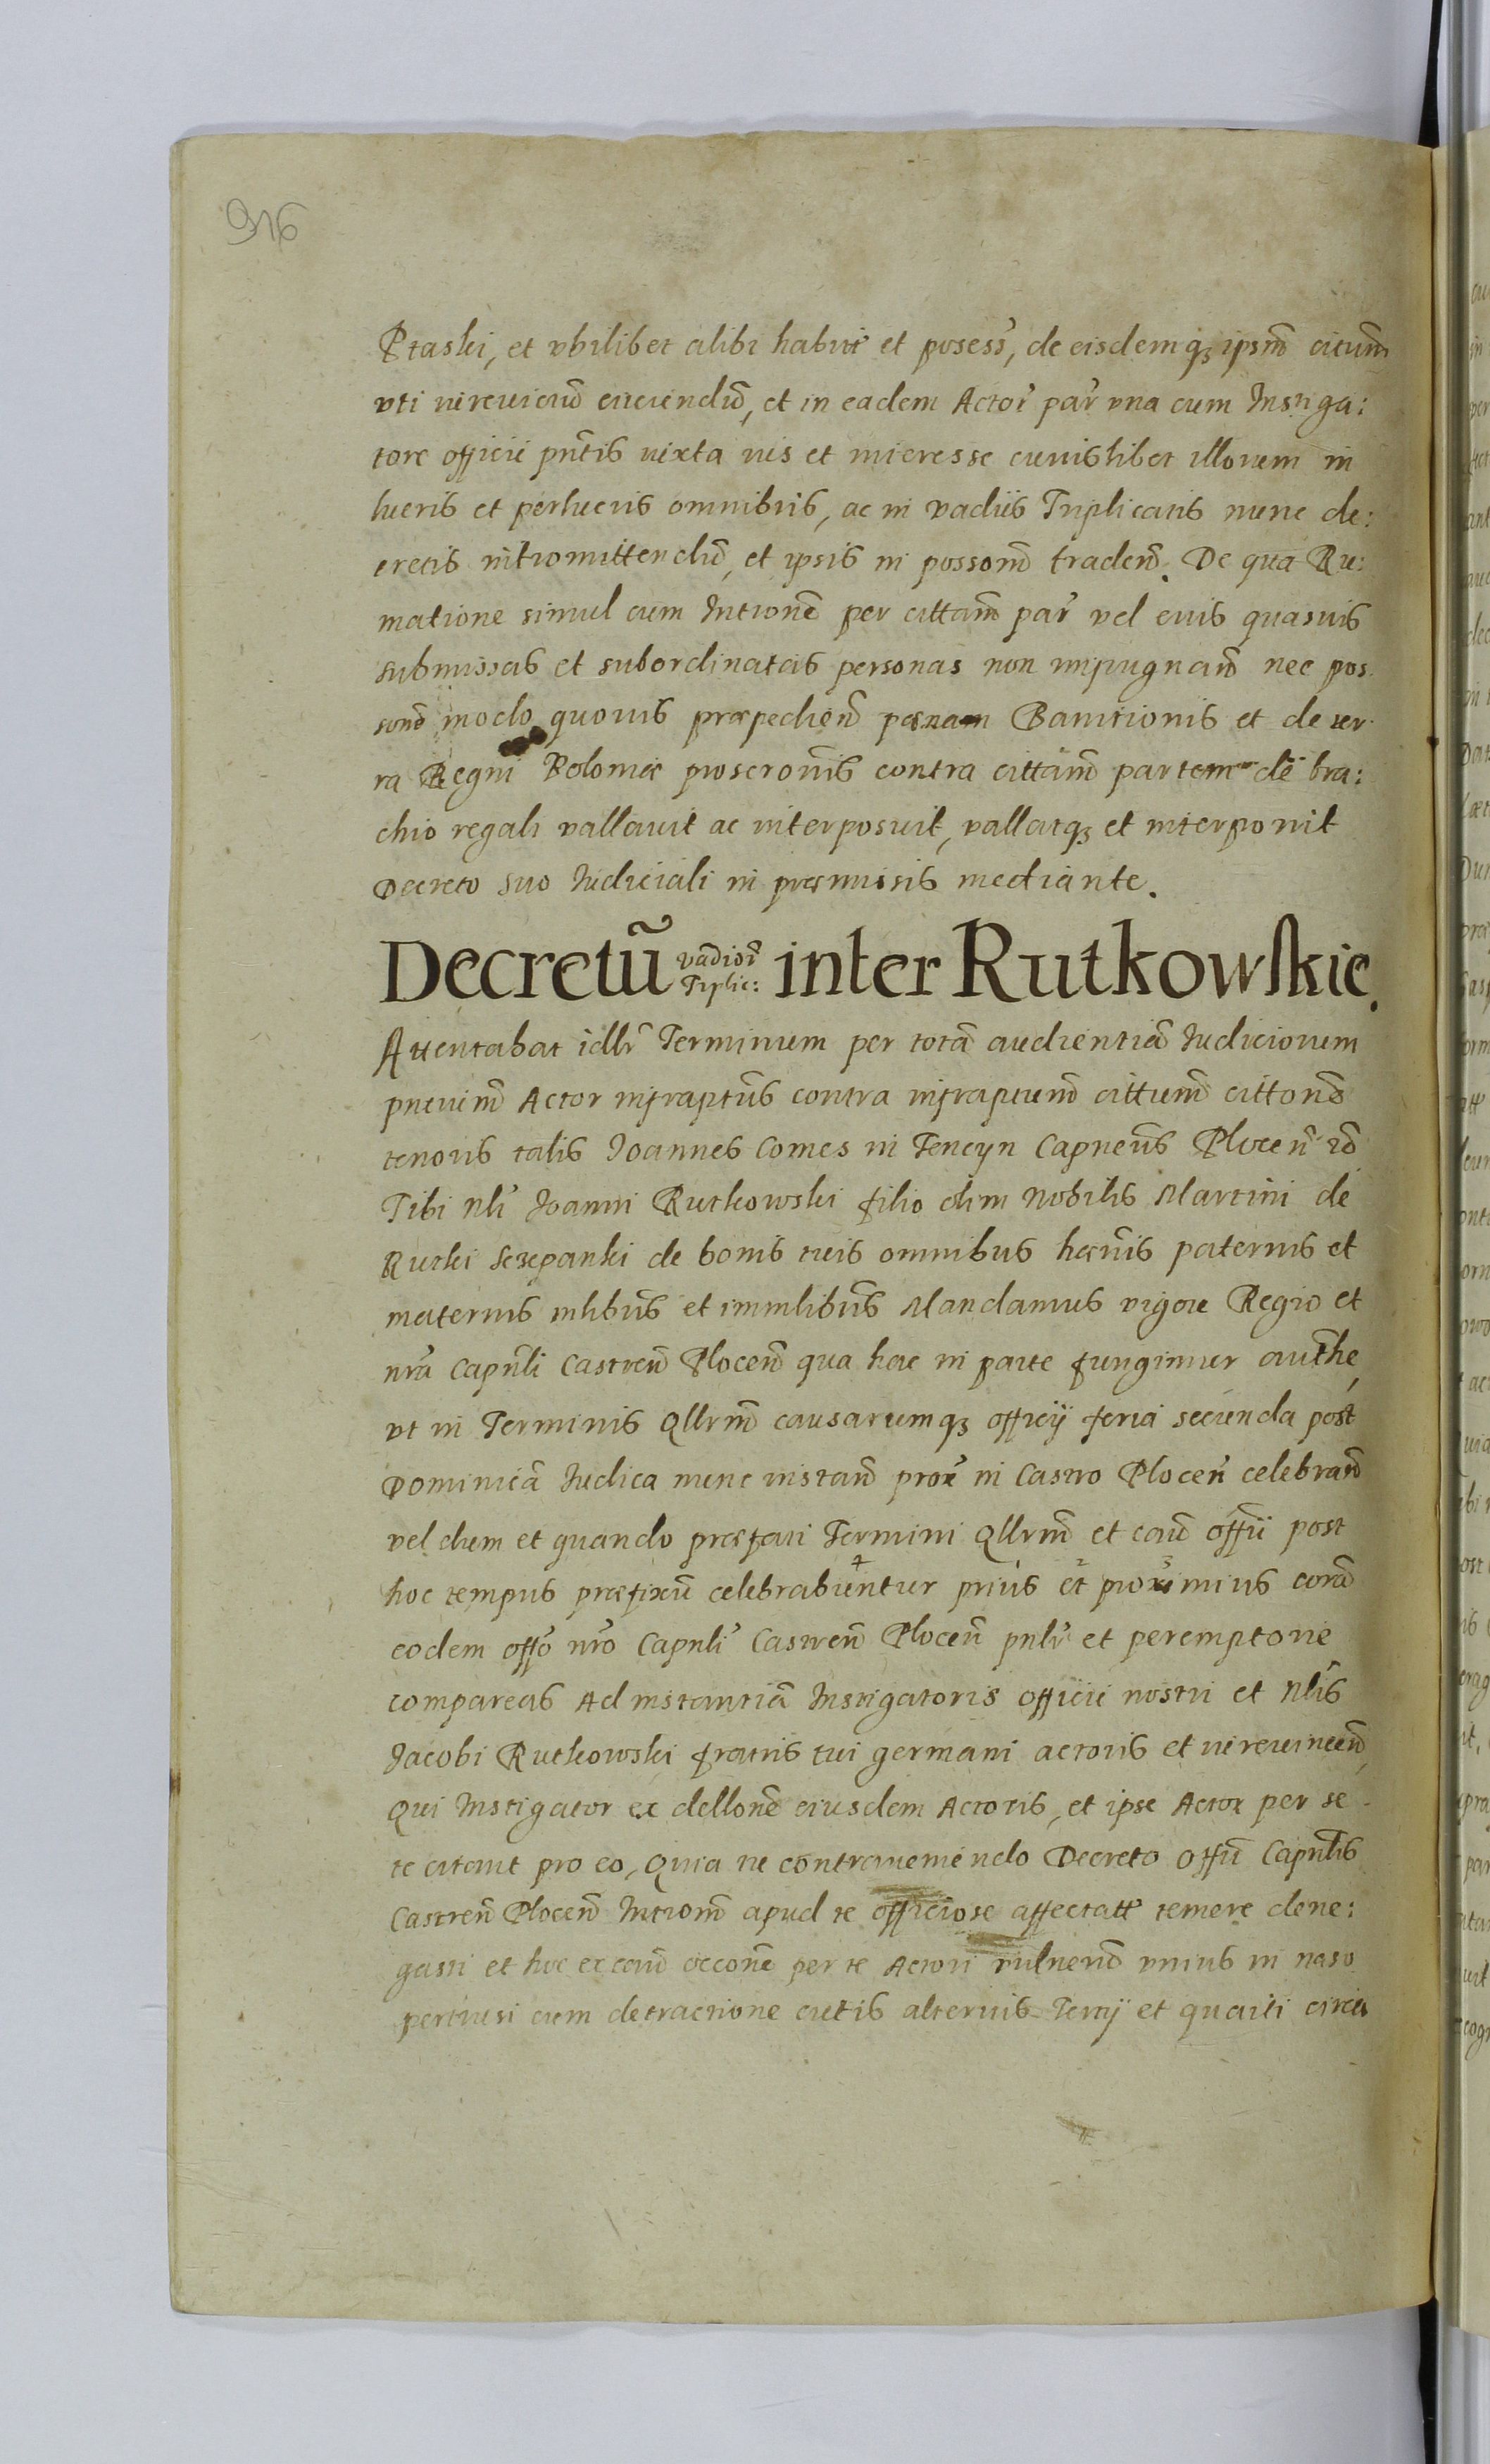 916
Ptaski, et vbilibet alibi habuit et posess, de eisdemq ipsm citum
vti iureuictu euicendu, et in eadem Actor par vna cum Instiga:
tore officii pntis iuxta ius et interesse cuiuslibet illorum in
lucris et perlucris omnibus, ac in vadiis Triplicatis nunc de:
cretis intromittendu, et ipsis in possom traden. De qua Ru:
matione simul cum Intione per cittam par vel euis quasuis
submissas et subordinatas personas non impugnan nec pos
som modo quouis præpedien pænam Banitionis et de ter
ra Regni Poloniæ proscronis contra cittam partem de bra:
chio regali vallauit ac interposuit, vallatq et interponit
Decreto suo Iudiciali in præmissis mediante.
Decretū vadior Triplic: inter Rutkowskie.
Attentabat idlr Terminum per totā audientiā Iudiciorum
pneuim Actor infraptus contra infraptum cittum cittone
tenoris talis Ioannes Comes in Tencyn Capneus Plocen id
Tibi Nli Ioanni Rutkowski filio olim Nobilis Martini de
Rutki Sczepanki de bonis tuis omnibus hænis paternis et
maternis mlibus et immlibus Mandamus vigore Regio et
nra Capnli Castren Plocen qua hac in parte fungimur authe,
vt in Terminis Qllrm causarumq officij feria secunda post
Dominicā Iudica nunc instan prox in Castro Plocen celebran
vel dum et quando præfati Termini Qllrm et cau offii post
hoc tempus præfixū celebrabuntur prius et proximius corā
eodem offo nro Capnli Castren Plocen pnlr et peremptorie
compareas Ad instantiā Instigatoris officii nostri et Nlis
Iacobi Rutkowski fratris tui germani actoris et iureuincen,
Qui Instigator ex dellone eiusdem Actoris, et ipse Actor per se
te citant pro eo, Quia tu contraueniendo Decreto offii Capnlis
Castren Plocen Intiom apud te officiose affectatt temere dene:
gasti et hoc ex cau occone per te Actori vulnerū vnius in naso
pertusi cum detractione cutis alterius Tertij et quarti circa